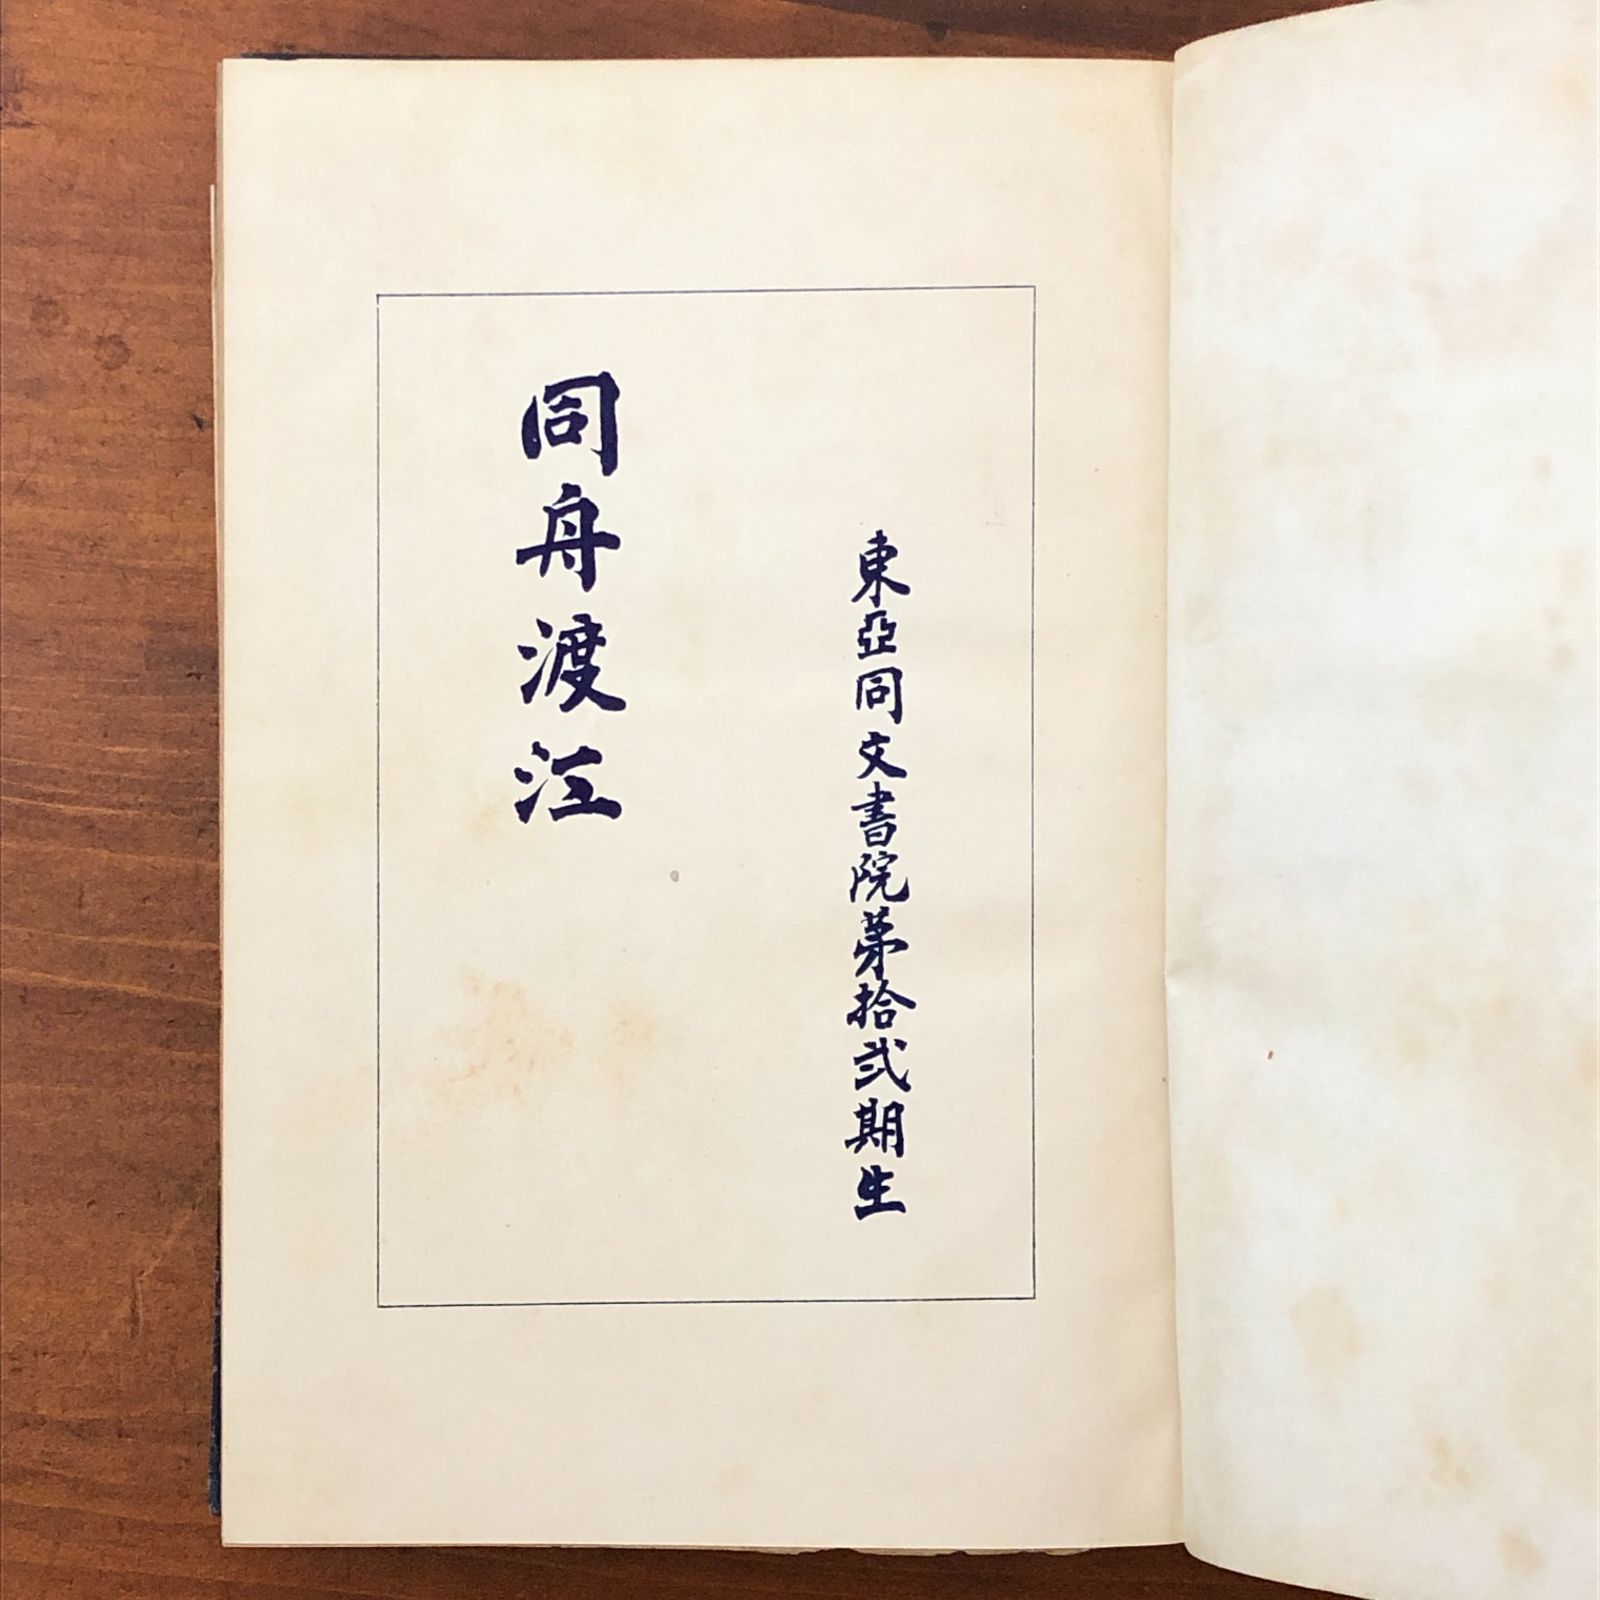 東亞同文書院第拾弐期生
同舟渡江